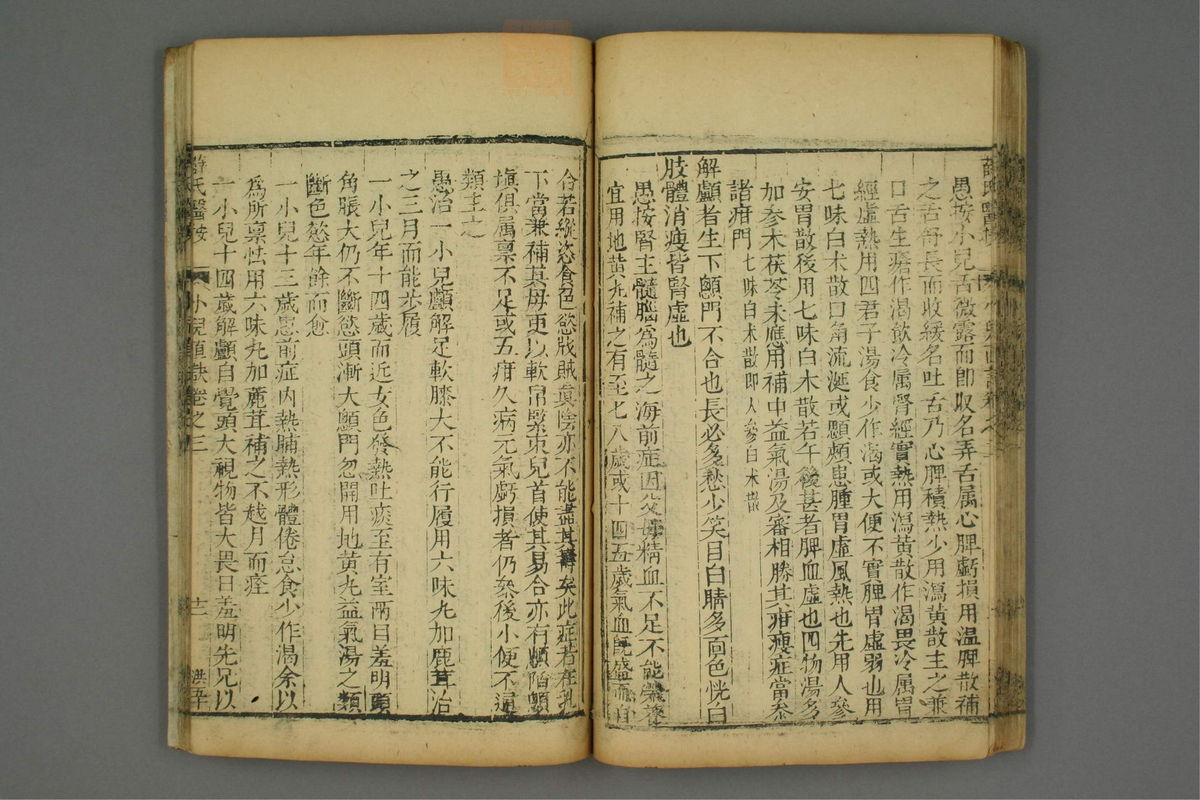 愚按小兒舌微露而即收名弄舌属心脾虧損用温脾散補
之舌舒長而收緩名吐舌乃心脾積熱少用瀉黃散主之兼
口舌生瘡作渴飲冷属胃經實熱用瀉黃散作渴畏冷属胃
經虛熱用四君子湯食少作渴或大便不實脾胃虛弱也用
七味白术散口角流涎或顋頰患腫胃虛風熱也先用人參
安胃散後用七味白术散若午後甚者脾血虛也四物湯多
加參术茯苓未應用補中益氣湯及審相勝其疳瘦症當叅
諸疳門 七味白术散即人參白术散
解顱者生下顖門不合也長必多愁少笑目白睛多面色㿠白
肢體消瘦皆腎虛也
愚按腎主髓腦為髓之海前症因父母精血不足不能榮養
宜用地黃丸補之有至七八歲或十四五歲氣血旣盛而自
合若縱恣食色慾戕賊真陰亦不能盡其壽矣此症若在乳
下當兼補其母更以軟帛緊束兒首使其易合亦有顖陷顖
塡俱属禀不足或五疳久病元氣虧損者仍叅後小便不通
類主之
愚治一小兒顱解足軟膝大不能行履用六味丸加鹿茸治
之三月而能步履
一小兒年十四歲而近女色發熱吐痰至有室兩目羞明頭
角脹大仍不斷慾頭漸大顖門忽開用地黃丸益氣湯之類
斷色慾年餘而愈
一小兒十三歲患前症內熱晡熱形體倦怠食少作渴余以
為所禀怯用六味丸加鹿茸補之不越月而痊
一小兒十四歲解顱自覺頭大視物皆大畏日羞明先兄以
薛氏醫按
小兒直訣卷之三
十二
洪五